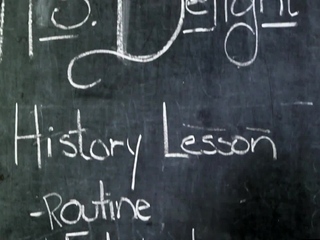 Delight
History Lesson
-Routine